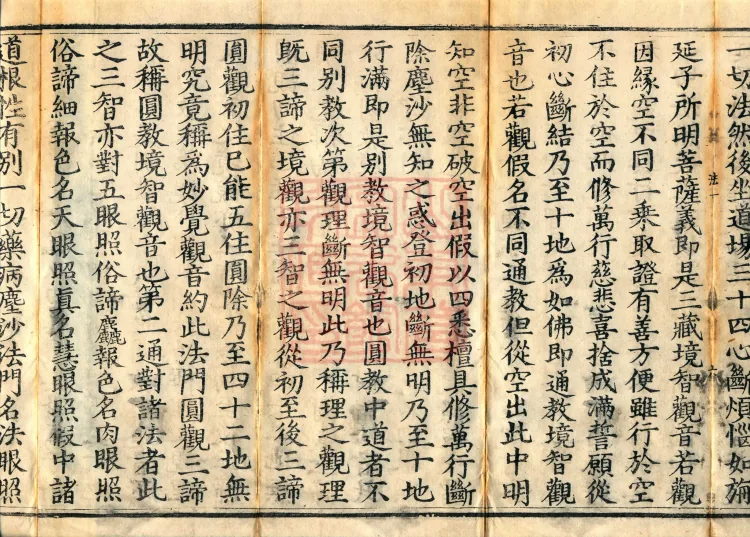 一切法然後坐道場三十四心斷煩惱如旃
延子所明菩薩義即是三藏境智觀音若觀
因緣空不同二乘取證有善方便雖行於空
不住於空而修萬行慈悲喜捨成滿誓願從
初心斷結乃至十地為如佛即通教境智觀
音也若觀假名不同通教但從空出此中明
知空非空破空出假以四悉檀具修萬行斷
除塵沙無知之惑登初地斷無明乃至十地
行滿即是別教境智觀音也圓教中道者不
同別教次第觀理斷無明此乃稱理之觀理
既三諦之境觀亦三智之觀從初至後三諦
圓觀初住已能五住圓除乃至四十二地無
明究竟稱為妙覺觀音約此法門圓觀三諦
故稱圓教境智觀音也第二通對諸法者此
之三智亦對五眼照俗諦麤報色名肉眼照
俗諦細報色名天眼照眞名慧眼照假中諸
道根性有別一切藥病塵沙法門名法眼照
法一
六